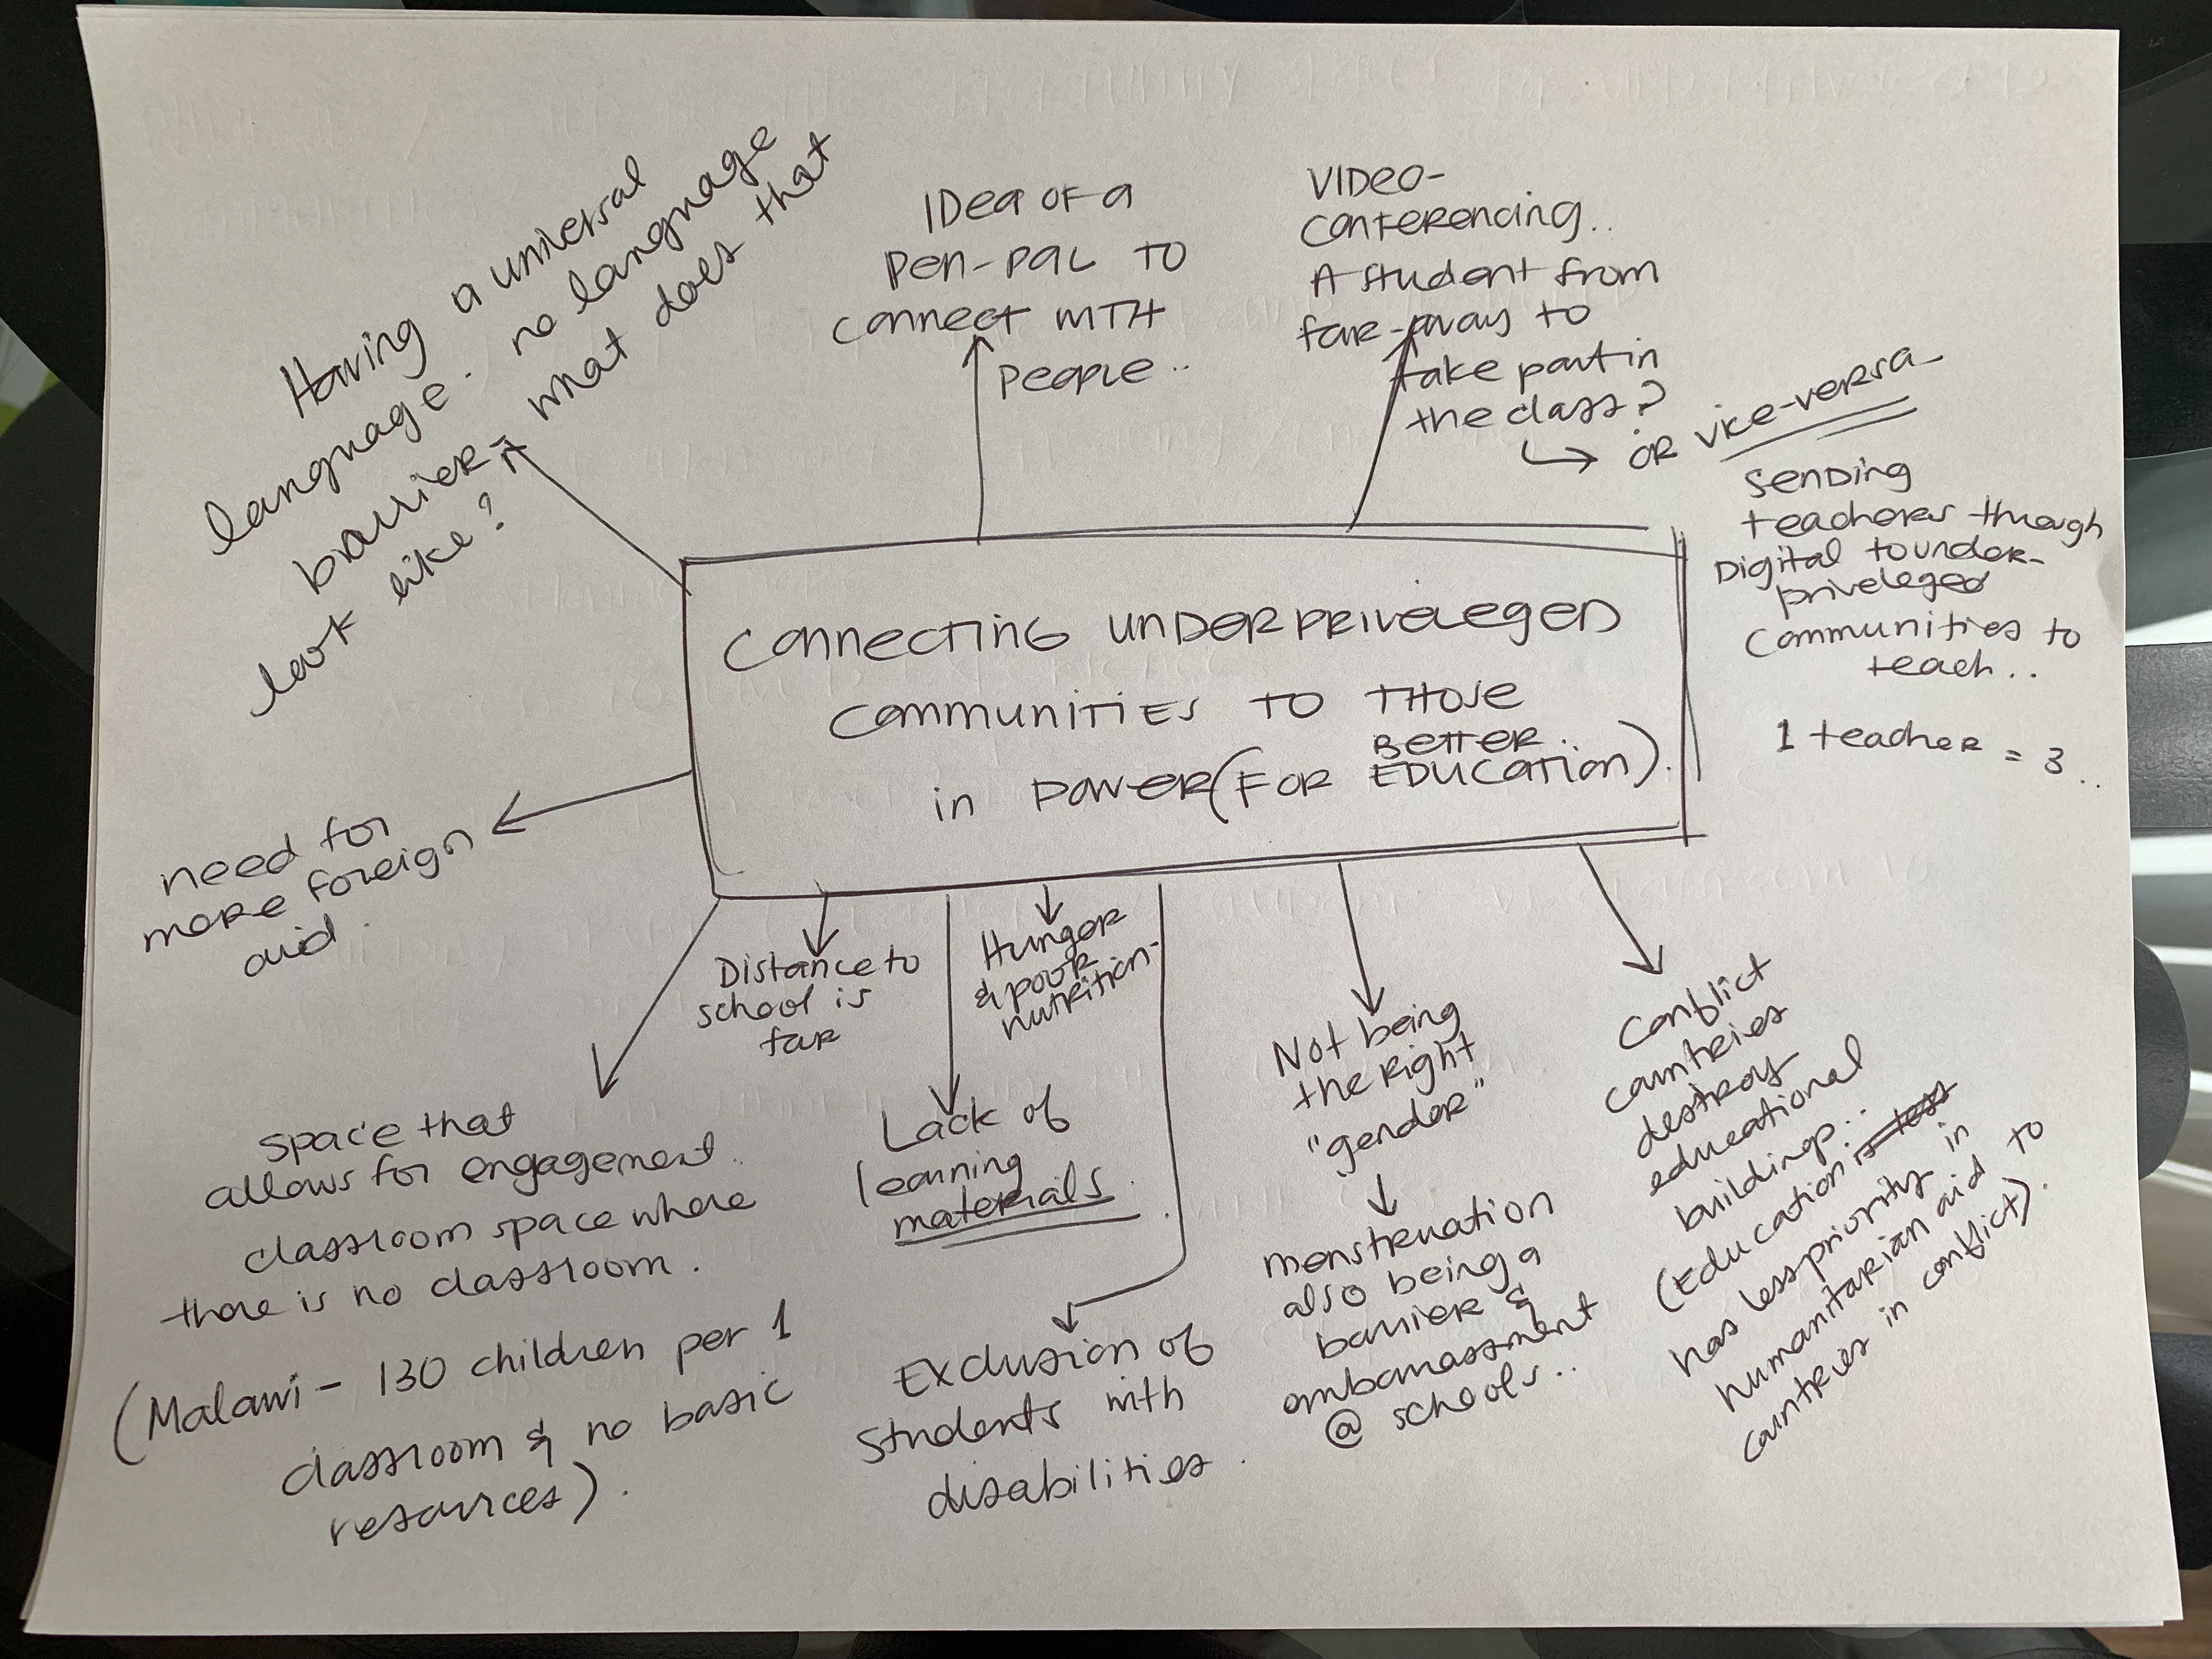 Having a universal
language. no language
barrier - what does that
look like?
IDea OF a
Pen-Pal TO
connect WITH
People..
VIDeo-
conferencing..
A student from
far-away to
take part in
the class?
↳ OR vice-versa-
Sending
teachers through
Digital to under-
priveleged
Communities to
teach..
1 teacher = 3.
CONNECTING UNDERPRIVELEGED
COMMUNITIES TO THOSE
in POWER (FOR BETTER.. EDUCATION).
need for
more foreign
aid.
Distance to
school is
far
Hunger
& poor
nutrition-
space that
allows for engagement.
classroom space where
there is no classroom.
(Malawi - 130 children per 1
classroom & no basic
resources).
Lack of
learning
materials.
Exclusion of
Students with
disabilities.
Not being
the right
"gender"
menstruation
also being a
barrier &
embarrassment
@ schools..
Conflict
countries
destroy
educational
buildings..
(Education is less
has less priority in
humanitarian aid to
countries in conflict).